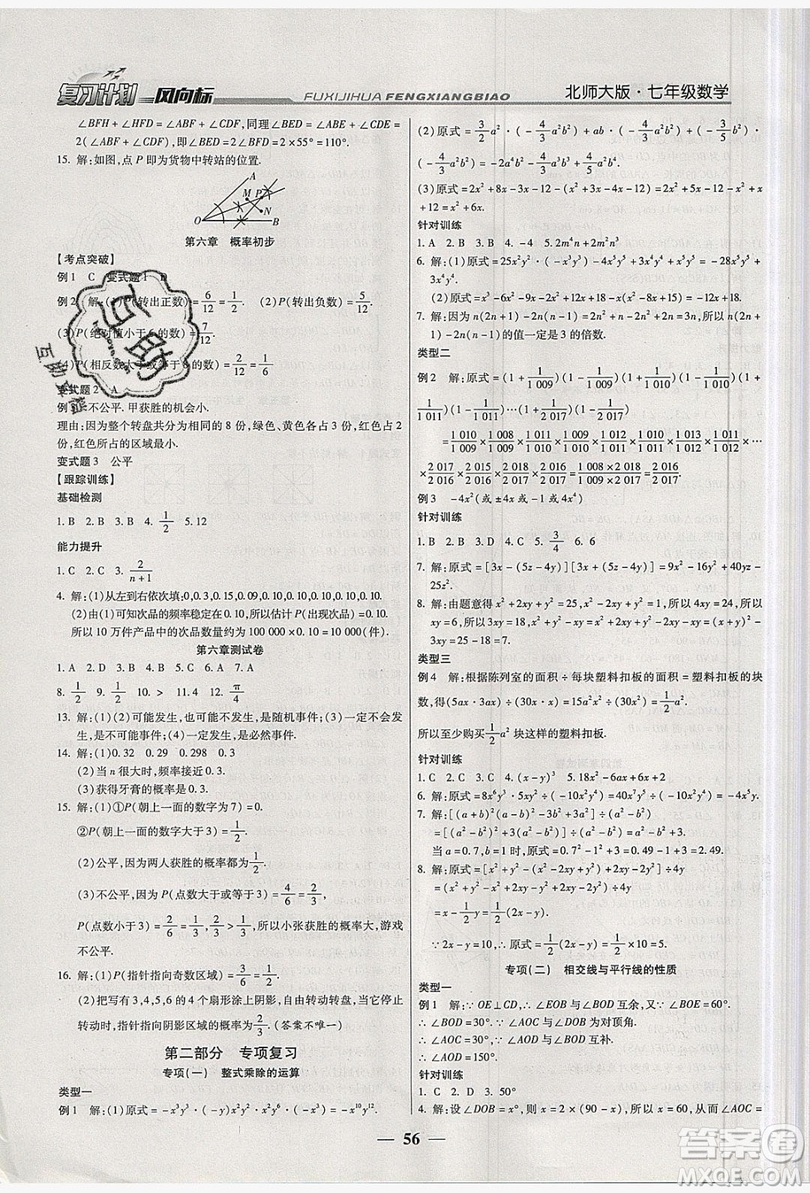 复习计划 风向标
FUXIJIHUA FENGXIANGBIAO
北师大版·七年级数学
∠BFH+∠DFH=∠ABF+∠CDF,同理∠BED=∠ABE+∠CDE=
2(∠ABF+∠CDF),即∠BED=2∠BFD=2×55°=110°.
15. 解:如图,点 P 即为货物中转站的位置.
A
M P
K N
O B
第六章 概率初步
【考点突破】
例1 C 变式题1 B
例2 解:(1)P(转出正数)=6/12=1/2. (2)P(转出负数)=5/12.
(3)P(绝对值小于6的数)=7/12.
(4)P(相反数大于或等于8的数)=2/12=1/6.
变式题2 A
例3 不公平. 甲获胜的机会小.
理由:因为整个转盘共分为相同的 8 份,绿色、黄色各占 3 份,红色占 2
份,红色所占的区域最小.
变式题3 公平
【跟踪训练】
基础检测
1. B 2. B 3. B 4. 1/2 5. 12
能力提升
1. C 2. C 3. 2/(n+1)
4. 解:(1)从左到右依次填:0,0.3,0.15,0.09,0.10,0.10,0.10,0.10.
(2)由(1)可知次品的频率稳定在 0.10,所以估计 P(出现次品)=0.10.
所以 10 万件产品中的次品数量约为 100 000×0.10=10 000(件).
第六章测试卷
1. A 2. B 3. D 4. C 5. D 6. A 7. A
8. 1/2 9. 1/2 10. 2/3 11. 4 12. π/4
13. 解:(1)(2)可能发生,也可能不发生,是随机事件;(3)一定不会发
生,是不可能事件;(4)一定发生,是必然事件.
14. 解:(1)0.32 0.29 0.298 0.3
(2)当 n 很大时,频率接近 0.3.
(3)获得牙膏的概率约是 0.3.
15. 解:(1)①P(朝上一面的数字为7)=0.
②P(朝上一面的数字为奇数)=1/2.
(2)公平,因为两人获胜的概率都为1/2.
(3)不公平,因为 P(点数大于或等于3)=4/6=2/3,
P(点数小于3)=2/6=1/3,1/3<2/3,所以小张获胜的概率大,游戏
不公平.
16. 解:(1)P(指针指向奇数区域)=3/6=1/2.
(2)把写有 3,4,5,6 的 4 个扇形涂上阴影,自由转动这个转盘,当它停止
转动时,指针指向阴影区域的概率为2/3.(答案不唯一)
第二部分 专项复习
专项(一) 整式乘除的运算
类型一
例1 解:(1)原式=-x³y³·(-x²y²)·xy²=x⁵y⁵·xy²=x⁶y⁷.
(2)原式=3/2a²·(-3/4a²b²)-3/2a²·(-3/4a²b²)·
(-3/4a²b²)=-9/8a⁴b²-27/32a⁶b⁴.
(3)原式=2x²+8x-3x-12-(x²-x-12)=2x²+5x-12-x²+x+
12=x²+6x.
针对训练
1. A 2. B 3. C 4. -4 5. 2m⁴n+2m²n³
6. 解:(1)原式=25x²y²·(-x³y³)+28x⁵y⁵=-25x⁵y⁵+28x⁵y⁵=
3x⁵y⁵.
(2)原式=6x²-9x-2x²+12x+16=4x²+3x+16.
7. 解:因为n(2n+1)-2n(n-1)=2n²+n-2n²+2n=3n,所以n(2n+
1)-2n(n-1)的值一定是 3 的倍数.
类型二
例2 解:原式=(1+1/1 009)(1-1/1 009)(1+1/1 010)(1-1/1 010)(1+
1/1 011)(1-1/1 011)×⋯×(1+1/2 016)(1-1/2 016)(1+1/2 017)(1-1/2 017)
=1 010/1 009×1 008/1 009×1 011/1 010×1 009/1 010×1 012/1 011×1 010/1 011×⋯
×2 017/2 016×2 015/2 016×2 018/2 017×2 016/2 017=1 008/1 009×2 018/2 017=2 016/2 017.
例3 -4x²(或±4x或4x⁴)
针对训练
1. C 2. B 3. A 4. B 5. 3/4 6. 6
7. 解:原式=[3x-(5z-4y)][3x+(5z-4y)]=9x²-(5z-4y)²=
9x²-25z²+40yz-16y².
8. 解:由题意得x²+2xy+y²=25,x²+y²=7,所以2xy=25-7=18.所以
xy=9.所以x²-xy+y²=7-9=-2.
类型三
例4 解:根据陈列室的面积÷每块塑料扣板的面积=塑料扣板的块
数,得(5ax·3ax)÷(30x·x)=(15a²x²)÷(30x²)=1/2a².
所以至少购买1/2a²块这样的塑料扣板.
针对训练
1. C 2. C 3. A 4. (x-y)³ 5. 1/2x²-xy+y²
6. 解:原式=8x⁶y³·5xy²÷(-10x²y⁴)=-4x⁵y.
7. 解:原式=[(a+b)²(a-b)²-3b²+3a²]÷(a²-b²)
=[(a²-b²)²+3(a²-b²)]÷(a²-b²)=a²-b²+3.
当 a=0.7,b=1.3 时,原式=0.49-1.69+3=1.8.
8. 解:原式=[x²+y²-(x²-2xy+y²)+2xy-2y²]÷4y
=(x²+y²-x²+2xy-y²+2xy-2y²)÷4y
=x-1/2y=1/2(2x-y).
∵2x-y=10,∴原式=1/2(2x-y)=1/2×10=5.
专项(二) 相交线与平行线的性质
类型一
例1 解:∵OE⊥CD,∴∠BOD与∠BOE互余,又∠BOE=60°.
∴∠BOD=30°. ∵∠AOC与∠BOD为对顶角.
∴∠AOC=30°. ∵∠AOD与∠BOD互补.
∴∠AOD=180°-∠BOD=180°-30°=150°.
针对训练
1. C 2. D 3. 50°
4. 解:设∠DOB=x°,则x=2×(90-x),所以x=60,所以∠AOC=
56
互助
答案圈
MXQE.COM